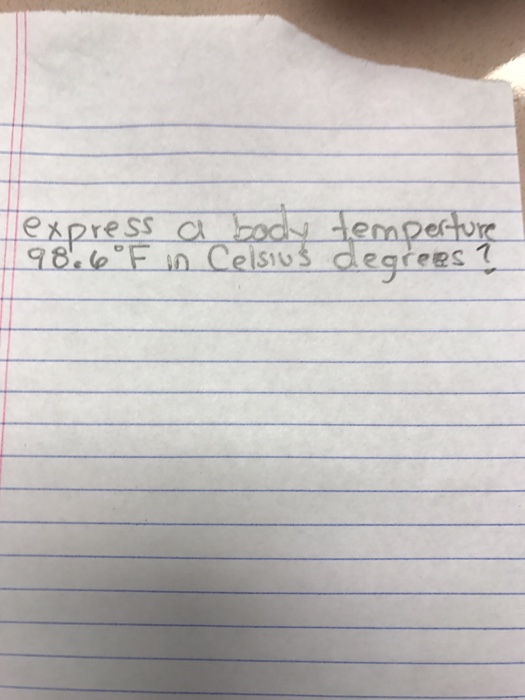 express a body temperture
98.6°F in Celsius degrees?